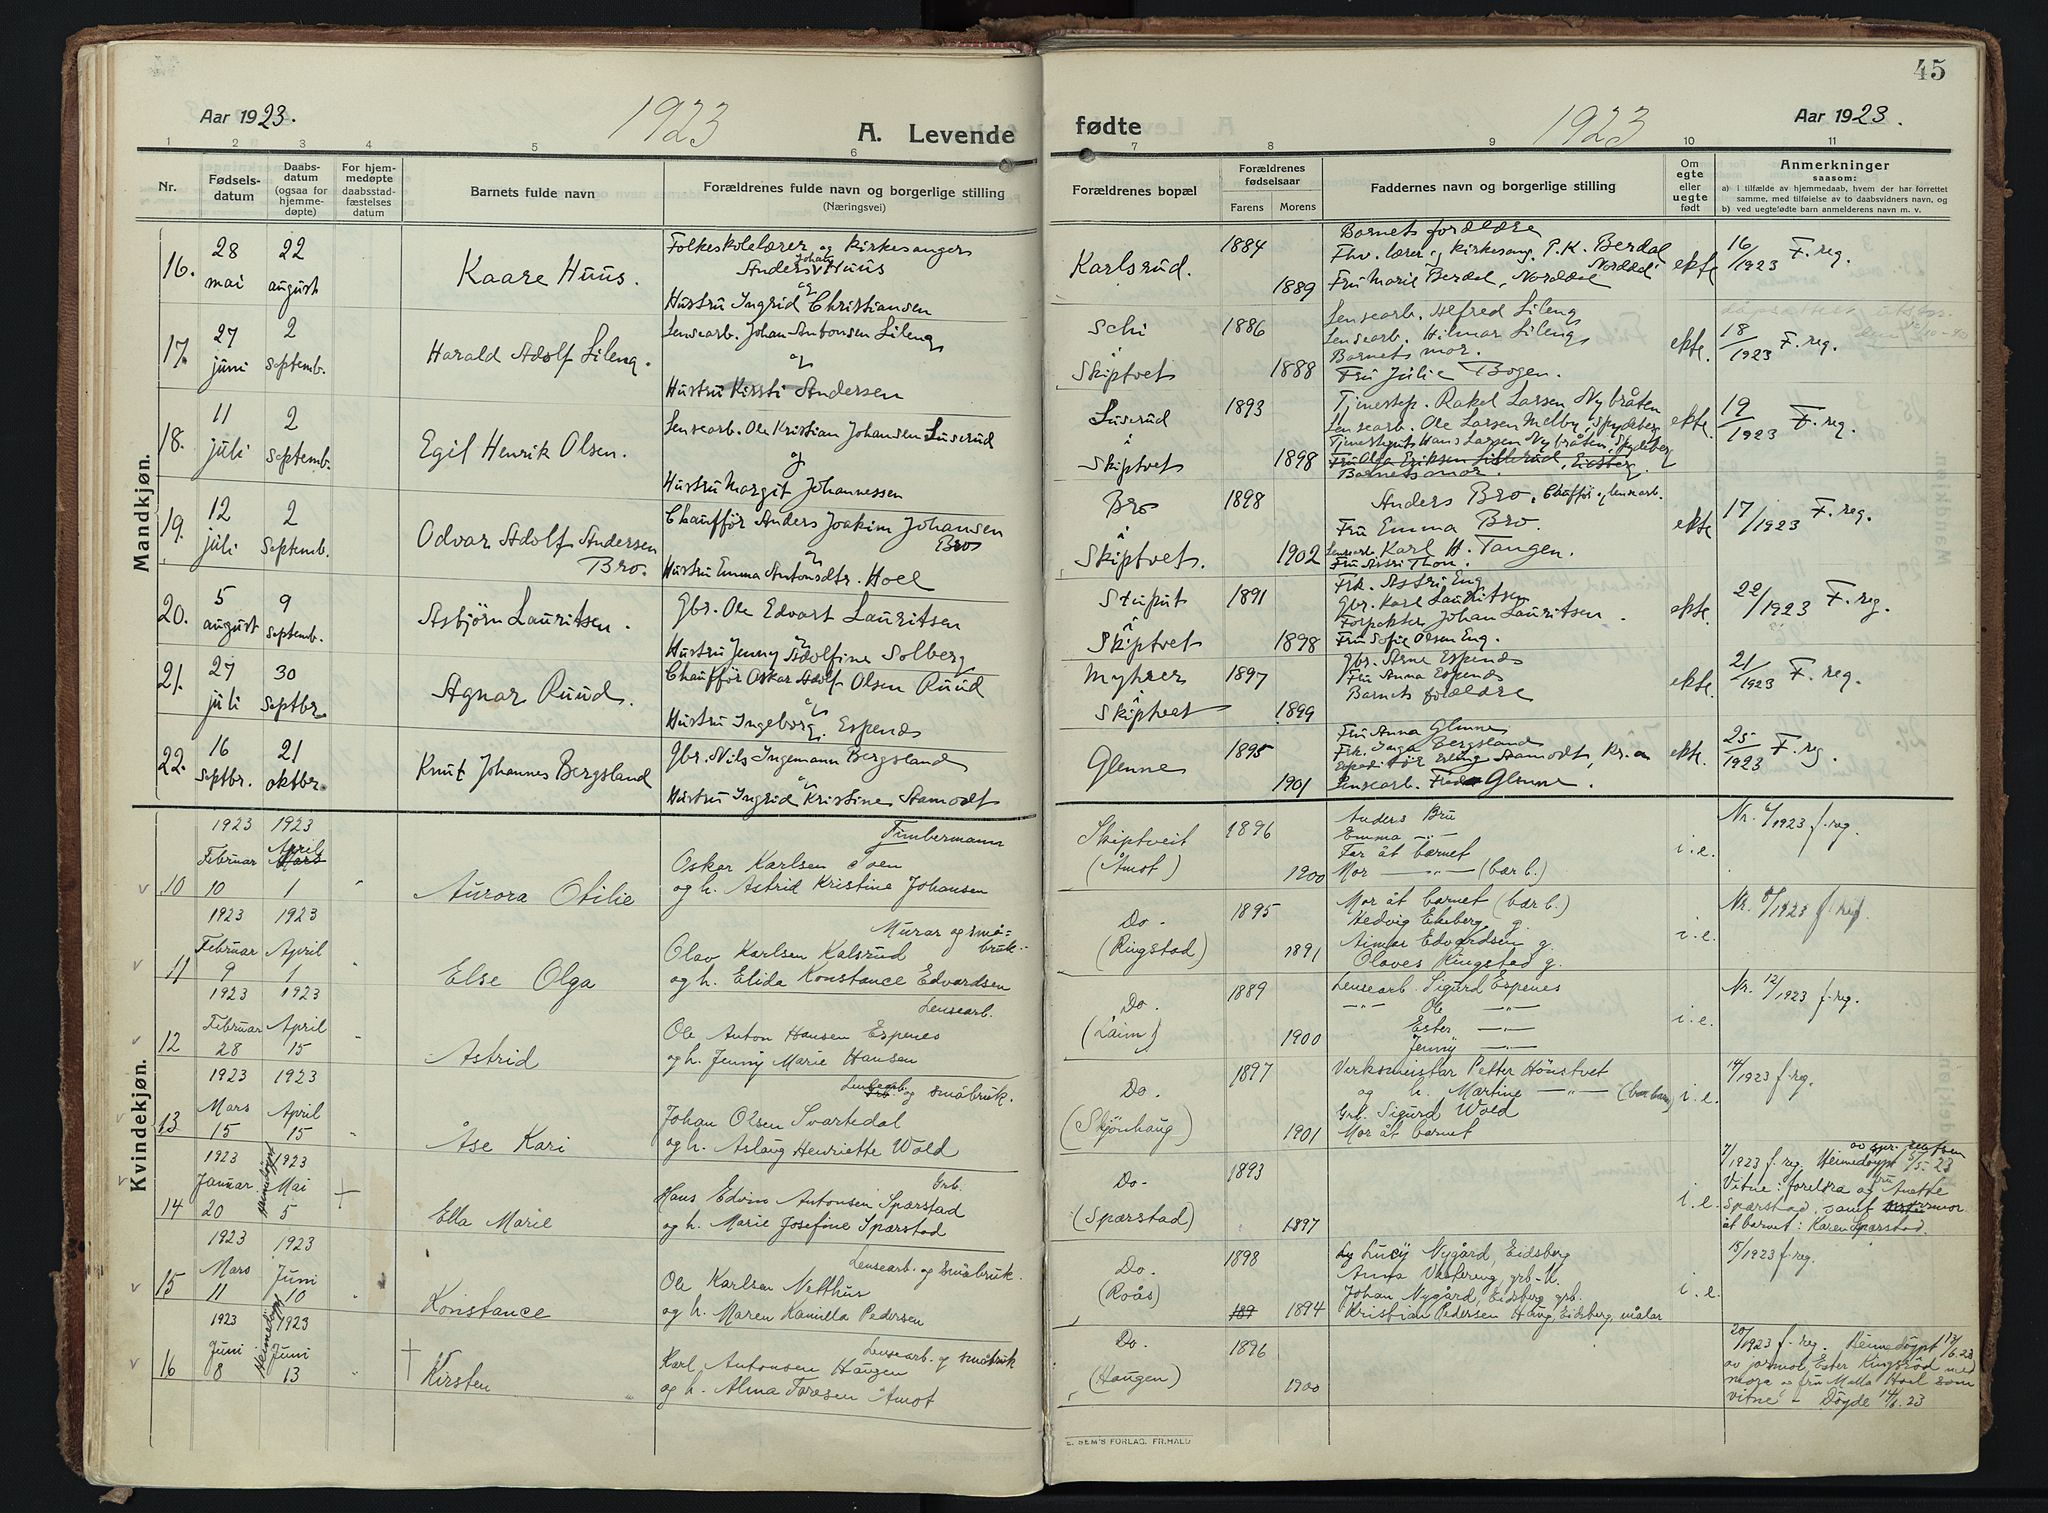 45
Aar 1923.
1923
A. Levende
fødte
1923
Aar 1923.
1 2 3 4 5 6 7 8 9 10 11
Nr.
Fødsels-
datum
Daabs-
datum
(ogsaa for
hjemme-
døpte)
For hjem-
medøpte
daabsstad-
fæstelses
datum
Barnets fulde navn
Forældrenes fulde navn og borgerlige stilling
(Næringsvei)
Forældrenes bopæl
Forældrenes
fødselsaar
Farens Morens
Faddernes navn og borgerlige stilling
Om
egte
eller
uegte
født
Anmerkninger
saasom:
a) i tilfælde av hjemmedaab, hvem der har forrettet
samme, med tilføielse av to daabsvidners navn, og
b) ved uegtefødte barn anmelderens navn m. v.
Mandkjøn.
16. 28 mai 22 august
Kaare Huus.
Folkeskolelærer og kirkesanger
Anders Johan Huus
og
Hustru Ingrid Christiansen
Karlsrud.
1884
1889
Barnets forældre
Fhv. lærer og kirkesang. P. K. Berdal
Norddal
Fru Marie Berdal, Norddal
ekte
16/1923 F. reg.
17. 27 juni 2 septemb.
Harald Adolf Sileng.
Lensearb. Johan Antonsen Sileng
og
Hustru Kirsti Andersen
Schi
i
Skiptvet
1886
1888
Lensearb. Alfred Sileng
Lensearb. Hilmar Sileng
Barnets mor.
Fru Julie Bogen.
ekte.
18/1923 F. reg.
18. 11 juli 2 septemb.
Egil Henrik Olsen.
Lensearb. Ole Kristian Johansen Luserud
og
Hustru Margit Johannessen
Luserud
i
Skiptvet
1893
1898
Tjenestep. Rakel Larsen Nybråten
Lensearb. Ole Larsen Melby, Spydeberg
Tjenestegut Hans Larsen Nybråten, Spydeberg
Fru Olga Eriksen Lislerud, Eidsberg.
Barnets mor
ekte.
19/1923 F. reg.
19. 12 juli 2 septemb.
Odvar Adolf Andersen
Bro.
Chauffør Anders Joakim Johansen
Bro
og
Hustru Emma Antonsdtr. Hoel
Bro
i
Skiptvet.
1898
1902
Anders Bro, Chauffør og lensearb.
Fru Emma Bro.
Lensearb. Karl H. Tangen.
Fru Astri Thon.
ekte
17/1923 F. reg.
20. 5 august 9 septemb.
Asbjørn Lauritsen.
Gbr. Ole Edvart Lauritsen
og
Hustru Jenny Adolfine Solberg
Stuput
i
Skiptvet
1891
1898
Frk. Astri Eng
Gbr. Karl Lauritsen
Forpakter Johan Lauritsen
Fru Sofie Olsen Eng.
ekte
22/1923 F. reg.
21. 27 juli 30 septbr.
Agnar Ruud.
Chauffør Oskar Adolf Olsen Ruud
og
Hustru Ingeborg Espenes
Myhrer
i
Skiptvet
1897
1899
Gbr. Arne Espenes
Fru Anna Espenes
Barnets forældre
ekte.
21/1923 F. reg.
22. 16 septbr. 21 oktbr.
Knut Johannes Bergsland
Gbr. Nils Ingemann Bergsland
og
Hustru Ingrid Kristine Stamodt
Glenne
1895
1901
Fru Anna Glenne
Frk. Inga Bergsland
Expeditør Erling Stamodt, Kr.a
Lensearb. Glenne.
ekte.
25/1923 F. reg
Kvindekjøn.
10 1923 Februar 10 1923 April 1
Aurora Otilie
Timbermann
Oskar Karlsen
og h. Astrid Kristine Johansen
Skiptveit
(Åmot)
1896
1900
Anders Bru
Emma -"-
Far åt barnet
Mor -"- (bær b.)
i.e.
Nr. 6/1923 f. reg.
11 1923 Februar 9 1923 April 1
Else Olga
Murar og små-
bruk.
Olav Karlsen Kalsrud
og h. Elida Konstance Edvardsen
Do.
(Ringstad)
1895
1891
Mor åt barnet (bær b.)
Hedvig Ekeberg g.
Edvardsen g.
Olaves Ringstad g.
i.e.
Nr. 8/1923 f. reg.
12 1923 Februar 28 1923 April 15
Astrid
Lensearb.
Ole Anton Hansen Espenes
og h. Jenny Marie Hansen
Do.
(Laim)
1889
1900
Lensearb. Sigurd Espenes
-"- Ole -"-
Ester -"-
Jenny -"-
i.e.
Nr. 12/1923 f. reg.
13 1923 Mars 15 1923 April 15
Åse Kari
Lensearb. og småbruk.
Johan Olsen Svartedal
og h. Aslaug Henriette Wold
Do.
(Skjønhaug)
1897
1901
Verksmeistar Petter Hønstvet
og h. Martine -"- (bær barn)
Grb. Sigurd Wold
Mor åt barnet
i.e.
14/1923 f. reg.
14 1923 Januar 20 Heimedøypt 1923 Mai 5
Ella Marie
Grb.
Hans Edvin Antonsen Spærstad
og h. Marie Josefine Spærstad
Do.
(Spærstad)
1893
1897
i.e.
7/1923 f. reg. Heimedøypt 5/5-23
Vitne: foreldra og fru Anette
Spærstad, samt mor
åt barnet: Karen Spærstad.
15 1923 Mars 11 1923 Juni 10
Konstance
Lensearb. og småbruk.
Ole Karlsen Netthus
og h. Maren Kamilla Pedersen
Do.
(Roås)
1898
1894
Lucy Nygård, Eidsberg
Johan Nygård, Eidsberg grb.
Kristian Pedersen Haug, Eidsberg, målar
i.e.
15/1923 f. reg.
16 1923 Juni 8 Heimedøypt 1923 Juni 13
Kirsten
Lensearb. og småbruk
Karl Antonsen Haugen
og h. Alma Toresen Åmot
Do.
(Haugen)
1896
1900
20/1923 f. reg. Heimedøypt 13/6.23
av jormor Ester Ringsrød med
mora og fru Malla Hoel som
vitne - Døyde 14/6.23
E. SEM'S FORLAG, FR.HALD